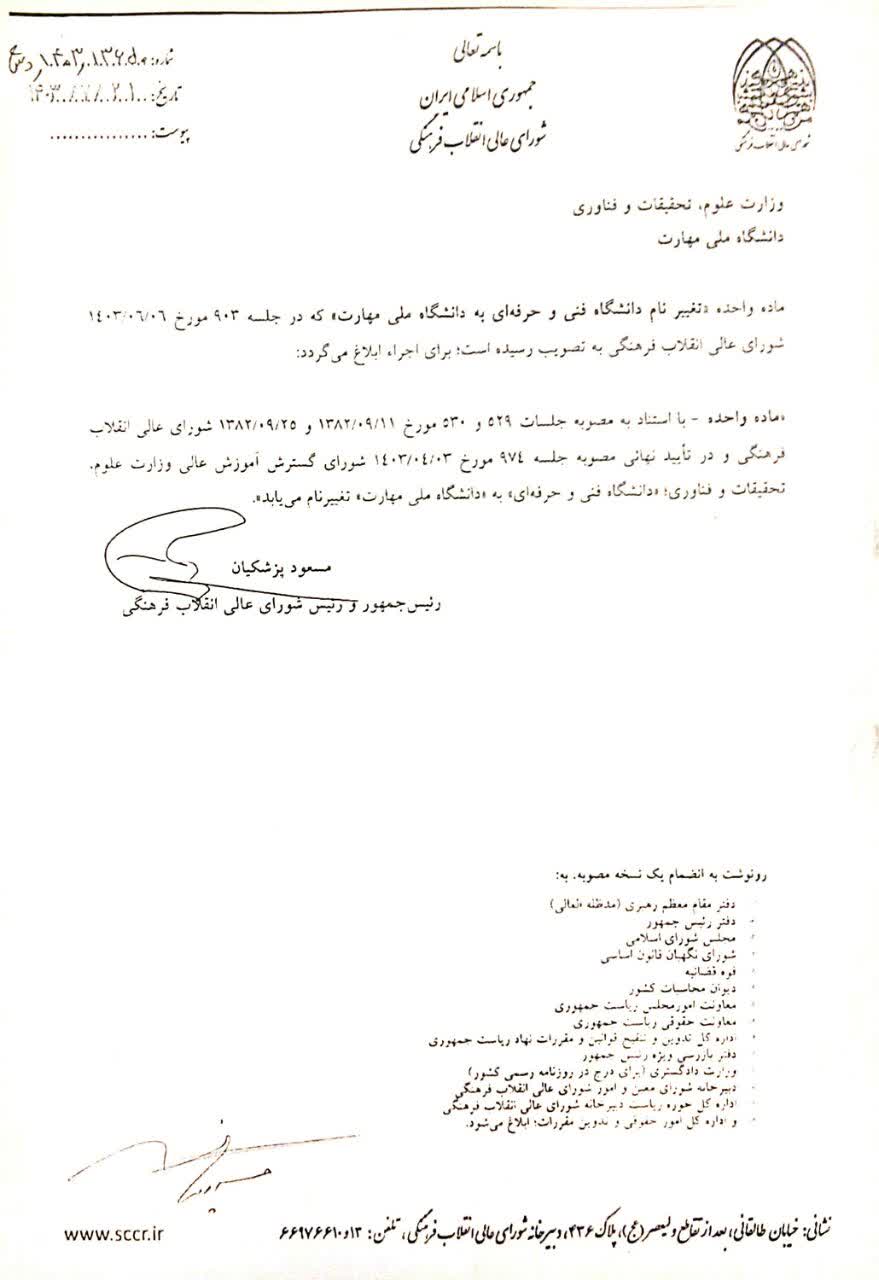 باسمه تعالی
جمهوری اسلامی ایران
شورای عالی انقلاب فرهنگی
شماره:
تاریخ:
پیوست: ................
شورای عالی انقلاب فرهنگی
وزارت علوم، تحقیقات و فناوری
دانشگاه ملی مهارت
ماده واحده «تغییر نام دانشگاه فنی و حرفه‌ای به دانشگاه ملی مهارت» که در جلسه ۹۰۳ مورخ ۱۴۰۳/۰۶/۰۶
شورای عالی انقلاب فرهنگی به تصویب رسیده است؛ برای اجراء ابلاغ می‌گردد:
«ماده واحده - با استناد به مصوبه جلسات ۵۲۹ و ۵۳۰ مورخ ۱۳۸۲/۰۹/۱۱ و ۱۳۸۲/۰۹/۲۵ شورای عالی انقلاب
فرهنگی و در تأیید نهائی مصوبه جلسه ۹۷۴ مورخ ۱۴۰۳/۰۴/۰۳ شورای گسترش آموزش عالی وزارت علوم،
تحقیقات و فناوری؛ «دانشگاه فنی و حرفه‌ای» به «دانشگاه ملی مهارت» تغییرنام می‌یابد».
مسعود پزشکیان
رئیس‌جمهور و رئیس شورای عالی انقلاب فرهنگی
رونوشت به انضمام یک نسخه مصوبه، به:
دفتر مقام معظم رهبری (مدظله العالی)
دفتر رئیس جمهور
مجلس شورای اسلامی
شورای نگهبان قانون اساسی
قوه قضائیه
دیوان محاسبات کشور
معاونت امورمجلس ریاست جمهوری
معاونت حقوقی ریاست جمهوری
اداره کل تدوین و تنقیح قوانین و مقررات نهاد ریاست جمهوری
دفتر بازرسی ویژه رئیس جمهور
وزارت دادگستری (برای درج در روزنامه رسمی کشور)
دبیرخانه شورای معین و امور شورای عالی انقلاب فرهنگی
اداره کل حوزه ریاست دبیرخانه شورای عالی انقلاب فرهنگی
و اداره کل امور حقوقی و تدوین مقررات؛ ابلاغ می‌شود.
نشانی: خیابان طالقانی، بعد از تقاطع ولیعصر (عج)، پلاک ۴۳۶، دبیرخانه شورای عالی انقلاب فرهنگی، تلفن: ۱۳و۶۶۹۷۶۶۱۰
www.sccr.ir